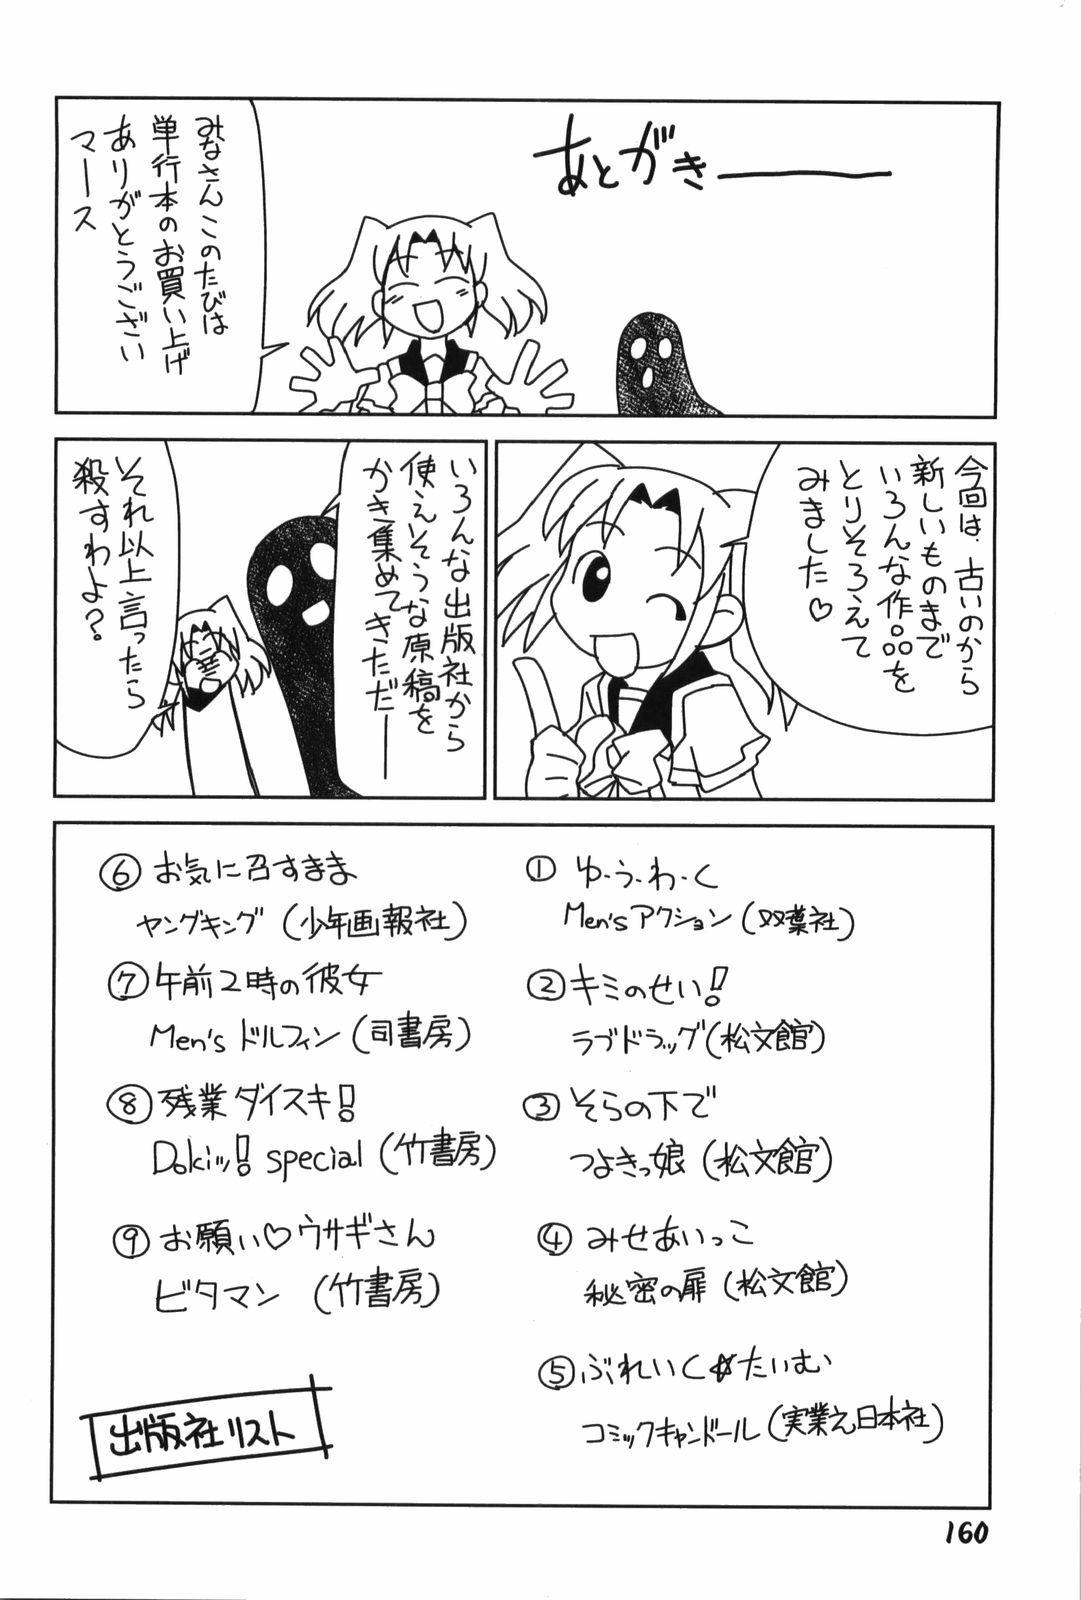 あとがき───
みなさんこのたびは
単行本のお買い上げ
ありがとうござい
マース
今回は、古いのから
新しいものまで
いろんな作品を
とりそろえて
みました♡
いろんな出版社から
使えそうな原稿を
かき集めてきただ──
それ以上言ったら
殺すわよ？
① ゆ・う・わ・く
Men'sアクション(双葉社)
② キミのせい!
ラブドラッグ(松文館)
③ そらの下で
つよきっ娘(松文館)
④ みせあいっこ
秘密の扉(松文館)
⑤ ぶれいく☆たいむ
コミックキャンドール(実業之日本社)
⑥ お気に召すまま
ヤングキング(少年画報社)
⑦ 午前2時の彼女
Men's ドルフィン(司書房)
⑧ 残業ダイスキ!
Dokiッ! special (竹書房)
⑨ お願い♡ウサギさん
ビタマン (竹書房)
出版社リスト
160